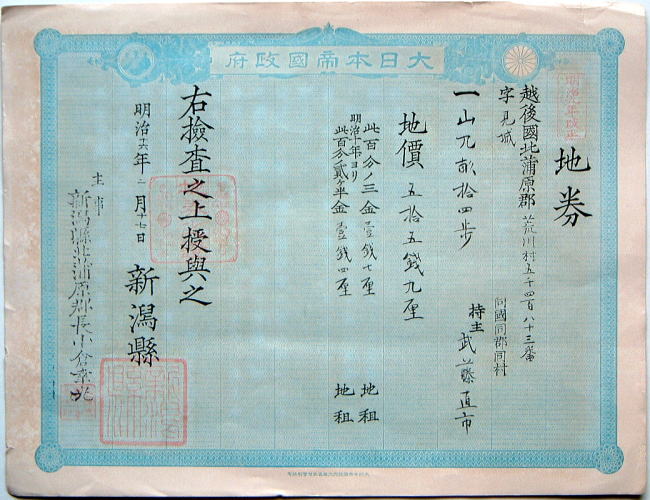 大日本帝國政府
地券
明治九年改正
越後國北蒲原郡荒川村五千四百八十三番
字見城
同國同郡同村
持主 武藤直市
一山 貳拾四歩
地價 五拾五錢九厘
此百分ノ三 金壹錢七厘 地租
明治十年ヨリ
此百分ノ貳ケ半金壹錢四厘 地租
右檢査之上授與之
明治十六年二月十七日 新潟縣
主事 新潟縣北蒲原郡長小倉